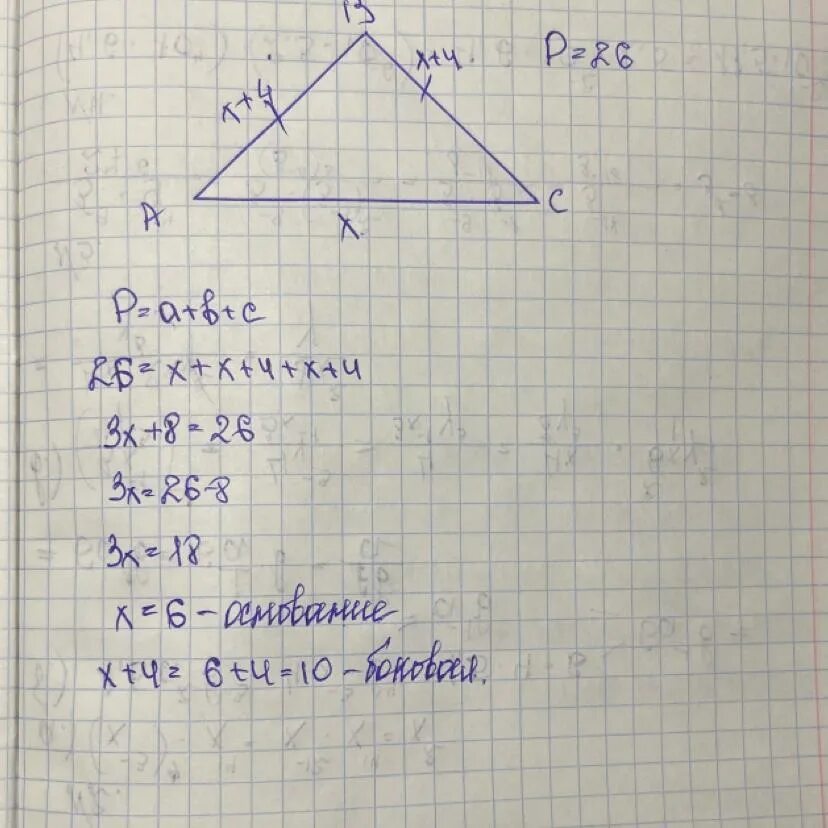 В
x+4
x+4
P=26
A
x
C
P=a+b+c
26=x+x+4+x+4
3x+8=26
3x=26-8
3x=18
x=6-основание
x+4=6+4=10-боковая.